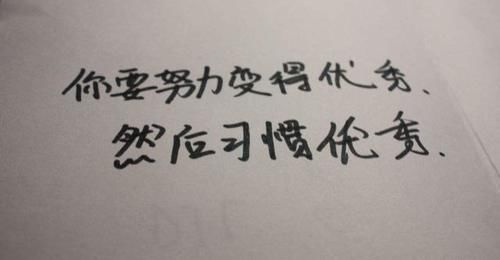 你要努力变得优秀、
然后习惯优秀、